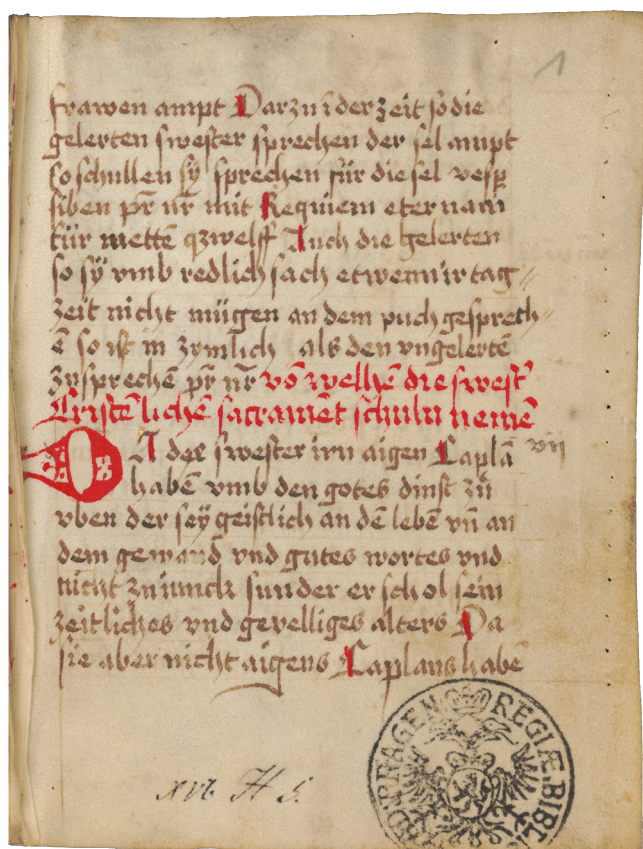 1
frawen ampt Darzu i der zeit so die
gelerten swester sprechen der sel ampt
so schullen sy sprechen für die sel vesp
siben pr̄ nr̄ mit Requiem eternam
für mettē zwelff Auch die gelerten
so sy vmb redlich sach etwenn ir tag
zeit nicht mügen an dem puch gesprech
ē so ist in zymlich als den vngelertē
zu sprechē pr̄ nr̄ vō welhē die swest
Cristēlichē sacramēt schuln nemē
DJ der swester irn aigen Caplā vij
habē vmb den gotes dinst zu
vben der sey geistlich an dē lebē vn̄ an
dem gewand vnd gutes wortes vnd
nicht zu iunck sunder er schol sein
zeitliches vnd gevelliges alters Da
sie aber nicht aigens Caplans habē
xvi H 5.
REGIÆ BIBL
PRAGEN